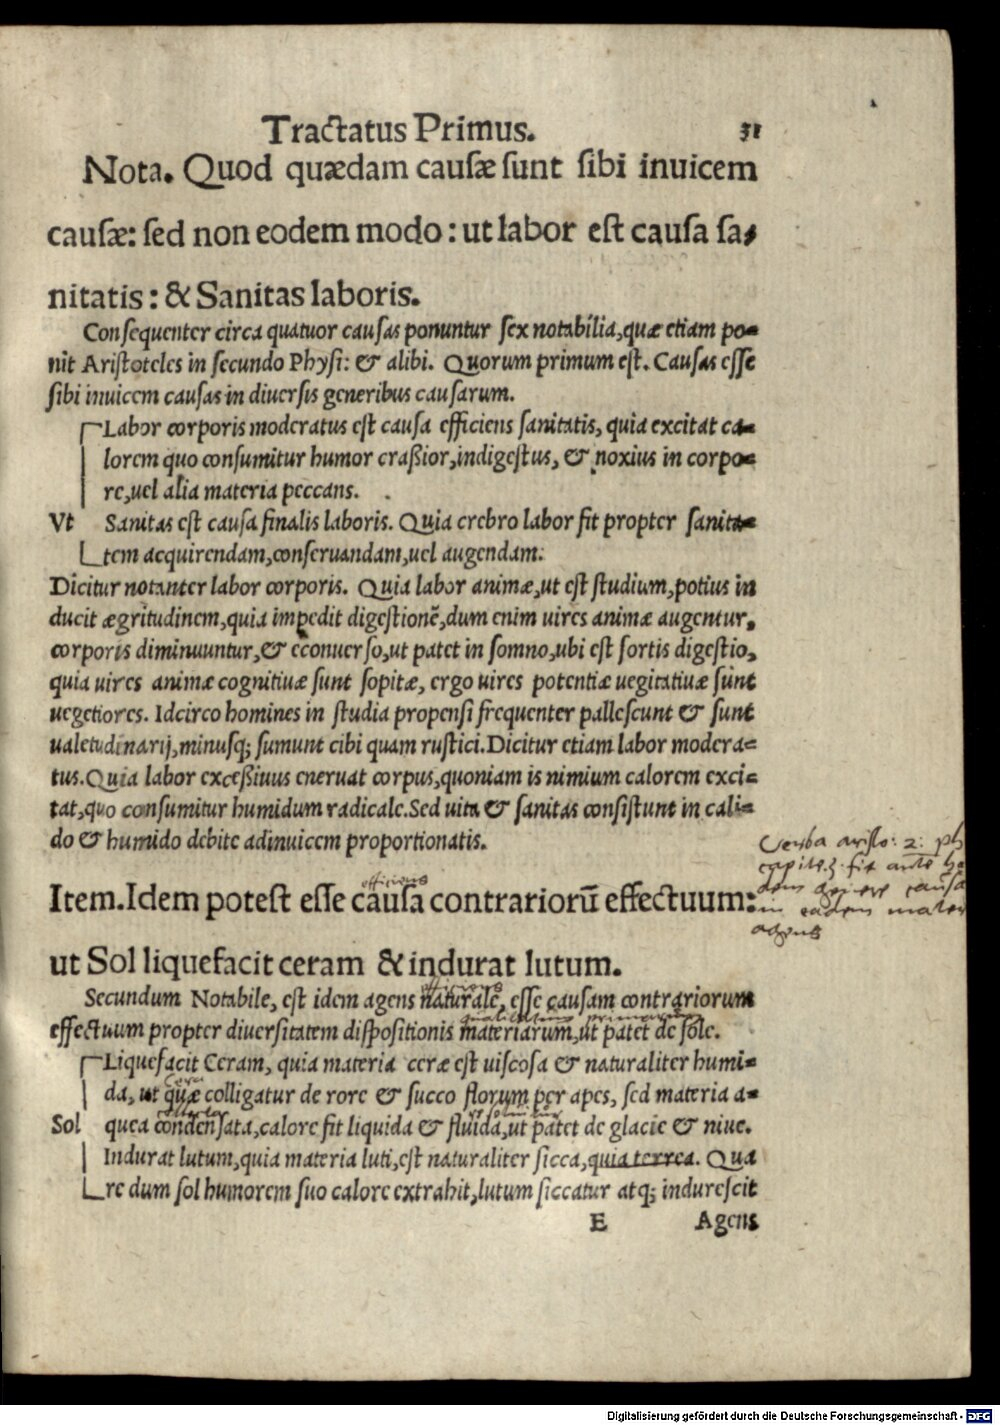 Tractatus Primus. 31
Nota. Quod quædam cauſæ ſunt ſibi inuicem
cauſæ: ſed non eodem modo: ut labor eſt cauſa ſa⸗
nitatis: & Sanitas laboris.
Conſequenter circa quatuor cauſas ponuntur ſex notabilia, quæ etiam po⸗
nit Ariſtoteles in ſecundo Phyſi: & alibi. Quorum primum eſt. Cauſas eſſe
ſibi inuicem cauſas in diuerſis generibus cauſarum.
Labor corporis moderatus eſt cauſa efficiens ſanitatis, quia excitat ca⸗
lorem quo conſumitur humor craßior, indigeſtus, & noxius in corpo⸗
re, uel alia materia peccans.
Vt Sanitas eſt cauſa finalis laboris. Quia crebro labor fit propter ſanita⸗
tem acquirendam, conſeruandam, uel augendam.
Dicitur notanter labor corporis. Quia labor animæ, ut eſt ſtudium, potius in
ducit ægritudinem, quia impedit digeſtionē, dum enim uires animæ augentur,
corporis diminuuntur, & econuerſo, ut patet in ſomno, ubi eſt fortis digeſtio,
quia uires animæ cognitiuæ ſunt ſopitæ, ergo uires potentiæ uegitatiuæ ſunt
uegetiores. Idcirco homines in ſtudia propenſi frequenter palleſcunt & ſunt
ualetudinarij, minusq; ſumunt cibi quam ruſtici. Dicitur etiam labor modera⸗
tus. Quia labor exceßiuus eneruat corpus, quoniam is nimium calorem exci⸗
tat, quo conſumitur humidum radicale. Sed uita & ſanitas conſiſtunt in cali⸗
do & humido debite adinuicem proportionatis.
Verba aristo: 2: ph
efficiens
Item. Idem poteſt eſſe cauſa contrariorū effectuum:
agens
ut Sol liquefacit ceram & indurat lutum.
Secundum Notabile, eſt idem agens naturale, eſſe cauſam contrariorum
effectuum propter diuerſitatem diſpoſitionis materiarum, ut patet de ſole.
Liquefacit Ceram, quia materia ceræ eſt uiſcoſa & naturaliter humi⸗
cera
da, ut quæ colligatur de rore & ſucco florum per apes, ſed materia a⸗
Sol quea condenſata, calore fit liquida & fluida, ut patet de glacie & niue.
Indurat lutum, quia materia luti, eſt naturaliter ſicca, quia terrea. Qua
re dum ſol humorem ſuo calore extrahit, lutum ſiccatur atq; indureſcit
E Agens
Digitalisierung gefördert durch die Deutsche Forschungsgemeinschaft - DFG